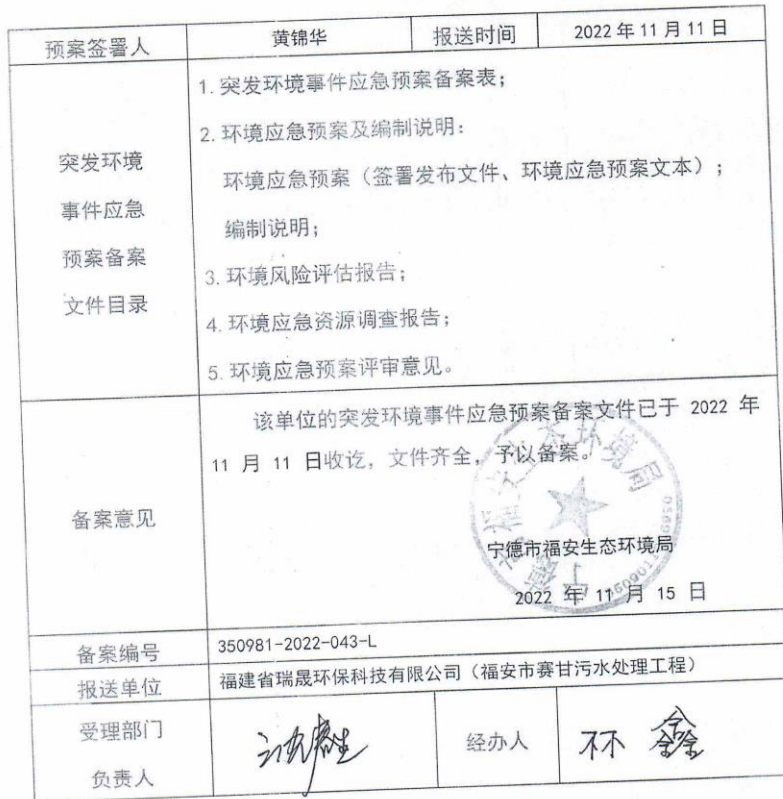 预案签署人 黄锦华 报送时间 2022 年 11 月 11 日
突发环境
事件应急
预案备案
文件目录
1. 突发环境事件应急预案备案表；
2. 环境应急预案及编制说明：
环境应急预案（签署发布文件、环境应急预案文本）；
编制说明；
3. 环境风险评估报告；
4. 环境应急资源调查报告；
5. 环境应急预案评审意见。
备案意见
该单位的突发环境事件应急预案备案文件已于 2022 年
11 月 11 日收讫，文件齐全，予以备案。
宁德市福安生态环境局
2022 年 11 月 15 日
备案编号 350981-2022-043-L
报送单位 福建省瑞晟环保科技有限公司（福安市赛甘污水处理工程）
受理部门
负责人
经办人 林鑫